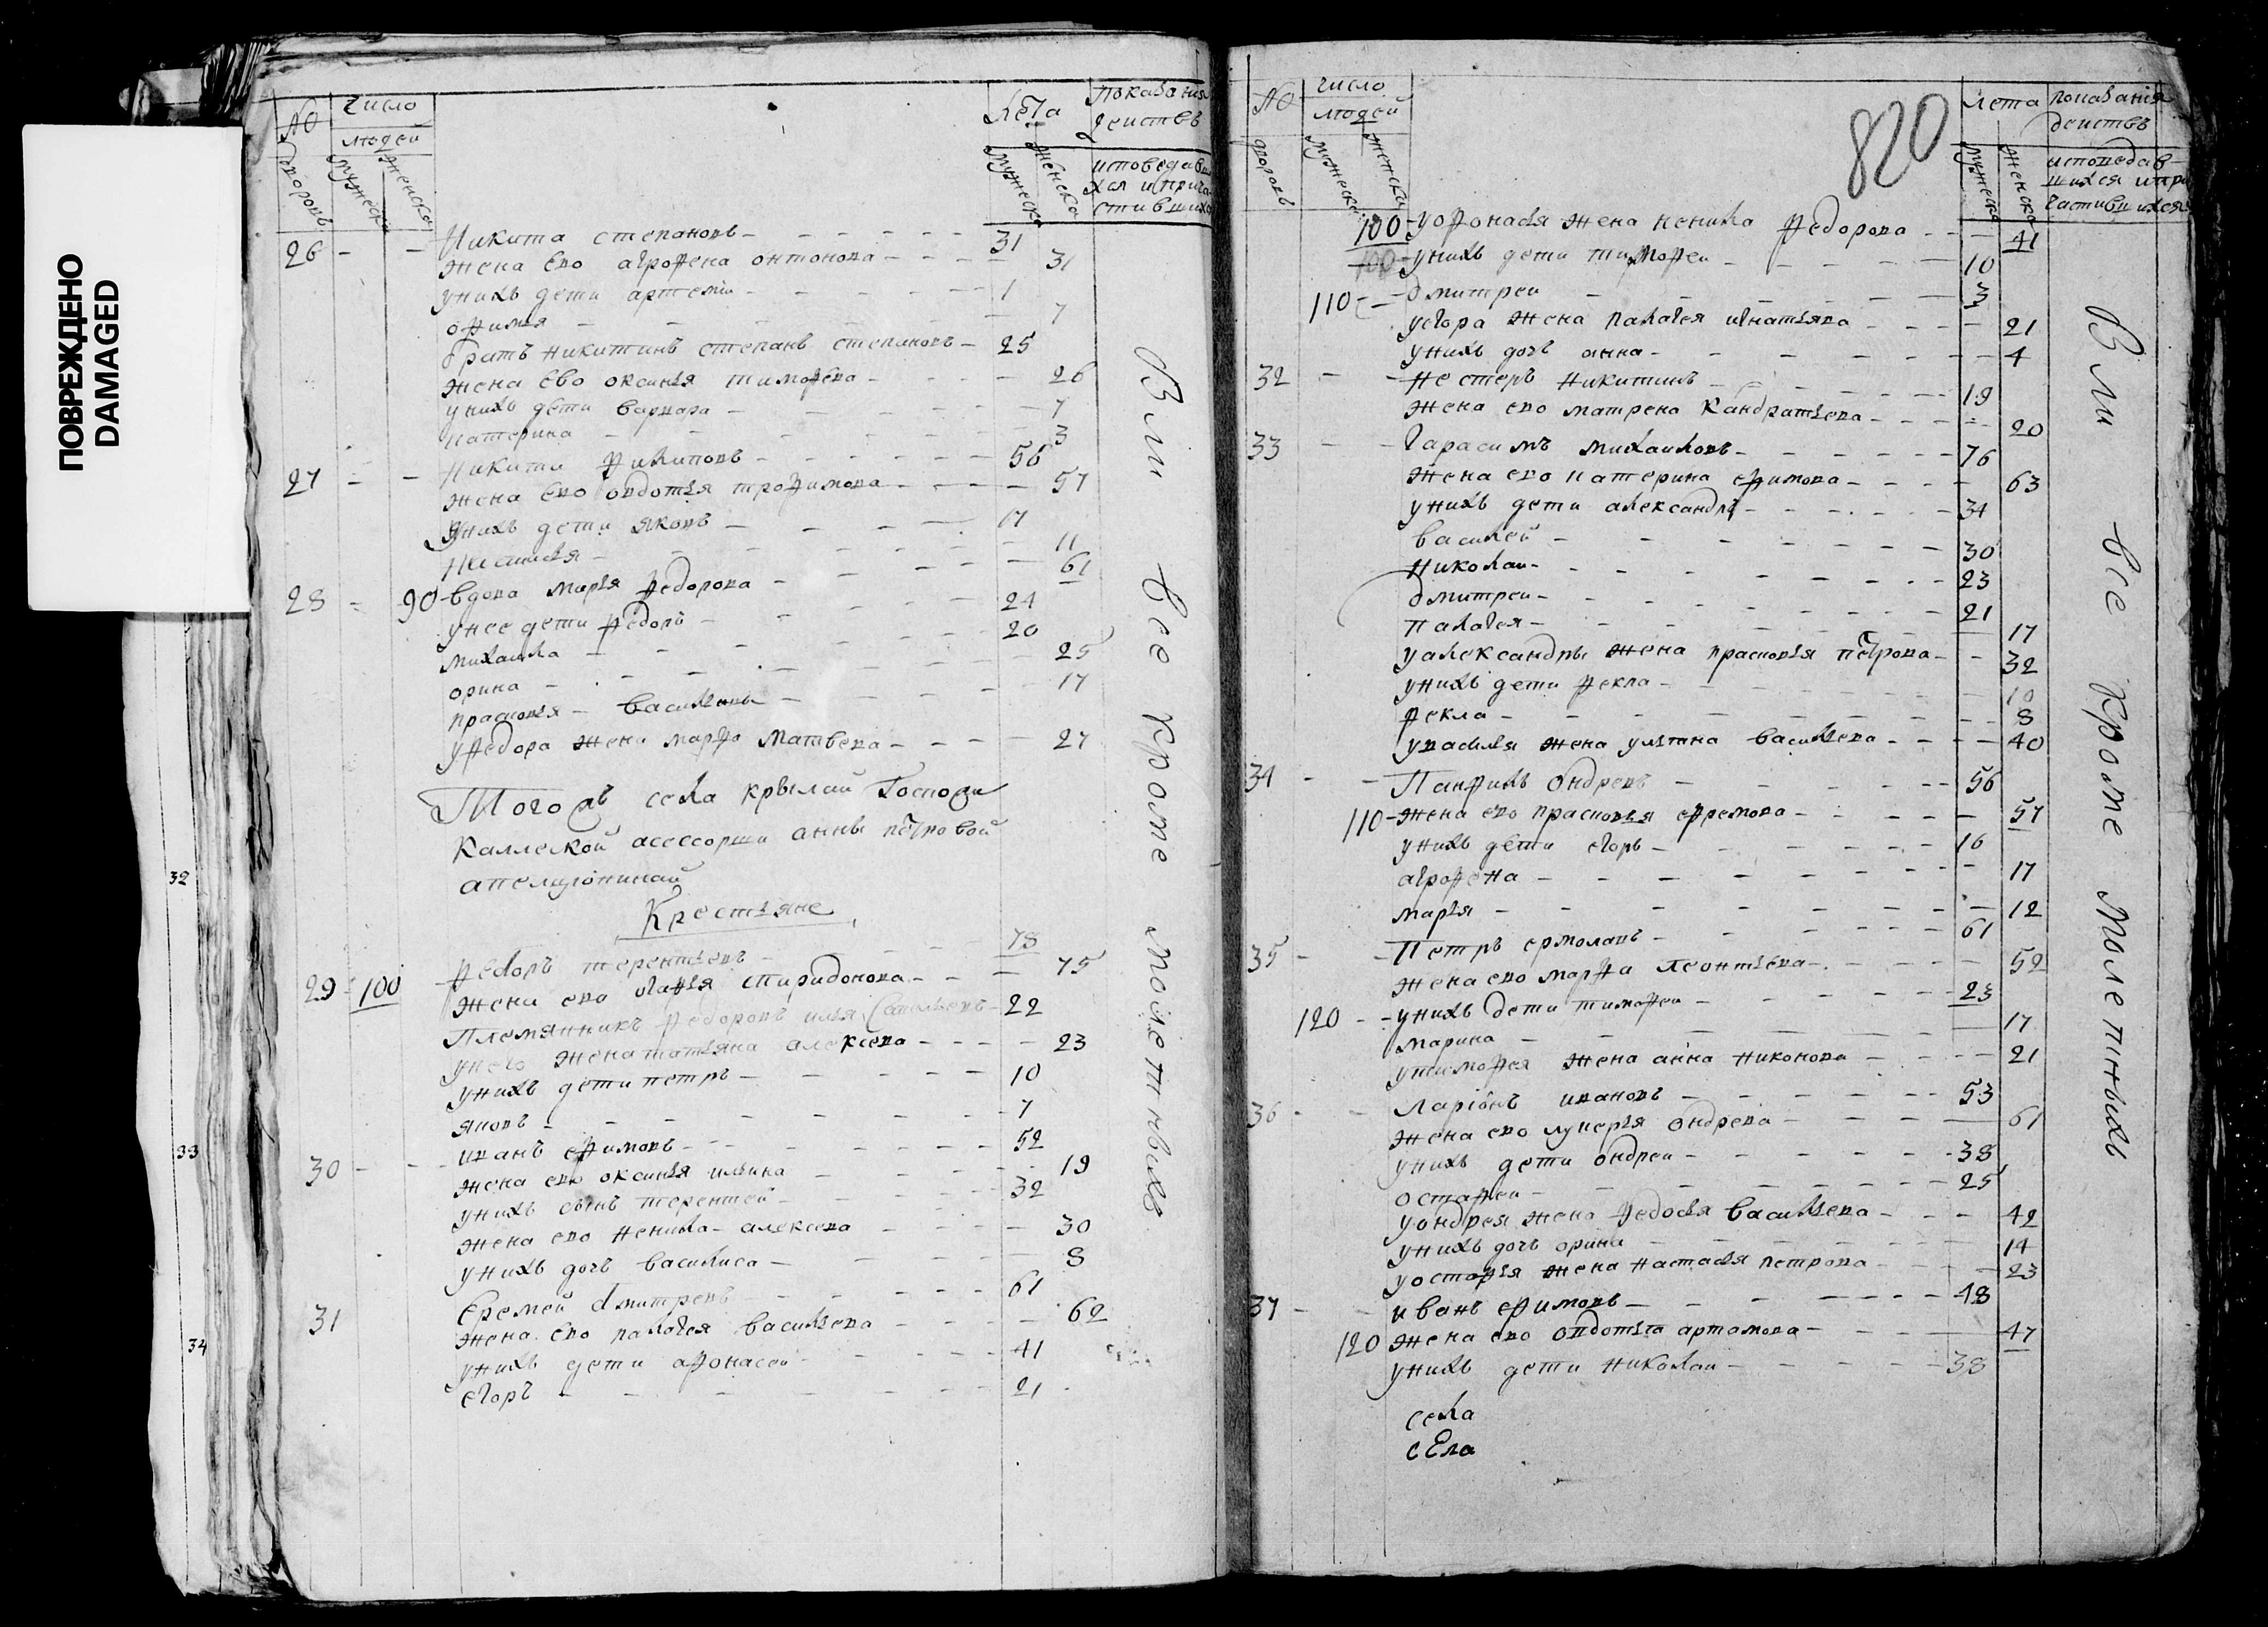 ПОВРЕЖДЕНО
DAMAGED
№ дворовъ
число людей
мужеска женска
Лета
мужеска женска
показания деиствъ
26 - - Никита степановъ - 31
жена ево агрофена онтонова - 31
унихъ дети артеми - 1
офимья - 7
братъ никитинъ степанъ степановъ - 25
жена ево оксинья тимофева - 26
унихъ дети варвара - 7
катерина - 3
27 - - Никита филиповъ - 56
жена ево овдотья трофимова - 57
унихъ дети яковъ - 17
11
28 - 90 - вдова марья федорова - 61
унее дети федоръ - 24
михаила - 20
орина - 25
прасковья - васильевы - 17
уфедора жена марфа матвева - 27
Тогожъ села крылаи Госпожи
Каллеской асессорши анны петровой
Крестьяне
29 - 100 федоръ терентьевъ - 78
жена ево спиридонова - 75
Племянникъ федоровъ илья - 22
унего жена татьяна алексева - 23
унихъ дети петръ - 10
яковъ - 7
30 - - иванъ ефимовъ - 52
жена ево оксинья ильина - 19
унихъ сынъ терентей - 32
жена ево ненила алексева - 30
унихъ дочь василиса - 8
31 Еремей дмитревъ - 61
жена ево палагея васильева - 62
унихъ дети афонасей - 41
егоръ - 21
Вли все кроме молетныхъ
32
33
34
820
№ дворовъ
число людей
мужеска женска
лета
мужеска женска
показания деиствъ
исповедавшихся и причастившихся
100 - уофонасья жена ненила федорова - 41
100 - унихъ дети тимофеи - 10
110 - дмитреи - 3
уегора жена палагея игнатьява - 21
унихъ дочь анна - 4
32 - - нестеръ никитинъ - 19
жена ево матрена кандратьева - 20
33 - - Гарасимъ михаиловъ - 76
жена ево катерина ефимова - 63
унихъ дети александръ - 34
василей - 30
николаи - 23
дмитреи - 21
палагея - 17
уалександры жена прасковья петрова - 32
унихъ дети фекла - 10
фекла - 8
увасилья жена ульяна васильева - 40
34 - - Панфилъ ондревъ - 56
110 - жена ево прасковья ефремова - 57
унихъ дети егоръ - 16
агрофена - 17
марья - 12
35 - - Петръ ермолавъ - 61
жена ево марфа леонтьева - 52
120 - - унихъ дети тимофеи - 23
марина - 17
утимофея жена анна никонова - 21
36 - - Ларіонъ ивановъ - 53
жена ево лукерья ондрева - 61
унихъ дети ондреи - 38
остафеи - 25
уондрея жена федосья васильева - 42
унихъ дочь орина - 14
уостафья жена настасья петрова - 23
37 - - иванъ ефимовъ - 48
120 жена ево овдотья артамова - 47
унихъ дети николаи - 38
села
сЕла
Вли все кроме молетныхъ